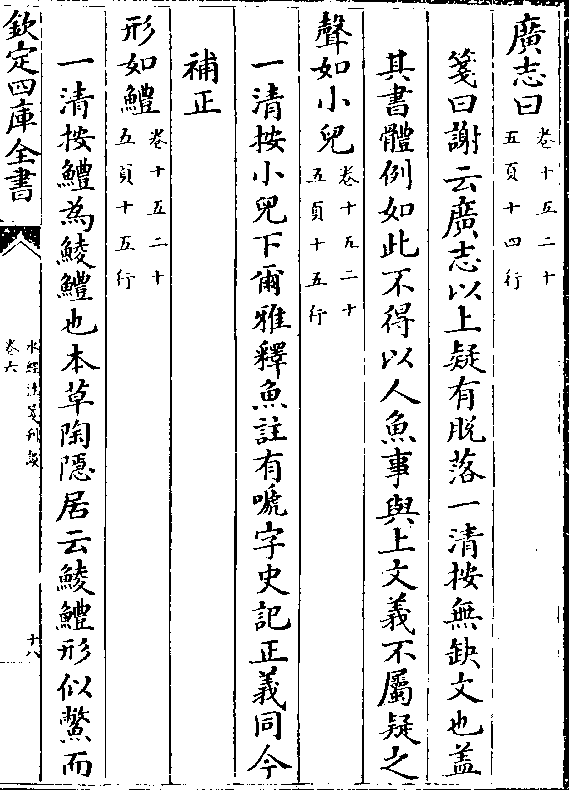 廣志曰卷十五二十五頁十四行
箋曰謝云廣志以上疑有脫落一清按無缺文也盖
其書體例如此不得以人魚事與上文義不屬疑之
聲如小兒卷十五二十五頁十五行
一清按小兒下爾雅釋魚註有嗁字史記正義同今
補正
形如鱧卷十五二十五頁十五行
一清按鱧為鯪鱧也本草陶隱居云鯪鱧形似鱉而
欽定四庫全書
水經注箋刋誤
卷六
十八